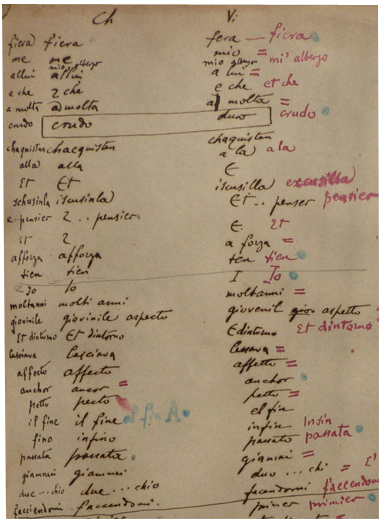 Ch Vi
fiera fiera fera — fiera
me me mio =
mio albergo mio albergo mi' albergo
allui allui a lui =
e che 2 che e che et che
a molta a molta a molta =
crudo crudo duro crudo
chaquistan chacquistan chaquistan
alla alla a la a la
Et Et E
schusinla iscusinla iscusilla excusilla
e..pensier 2 .. pensier Et .. penser pensier
Et 2 E. Et
afforza afforza a forza =
tien tien ten tien
Io Io I Io
moltanni molti anni moltanni =
giovinile giovinile aspecto giovenil aspetto
Et dintorno Et dintorno E dintorno Et dintorno
lasciava lasciava lassava =
affecto affecto affetto =
anchor ancor = anchor
petto pecto petto =
il fine il fine el fin A. el fin
fino infino infin Insin
passata passata. passato passata
giammi giammei giamai =
due...chio due...chio duo...chi =
facciendomi faccendomi. facendomi faccendomi
primer primier